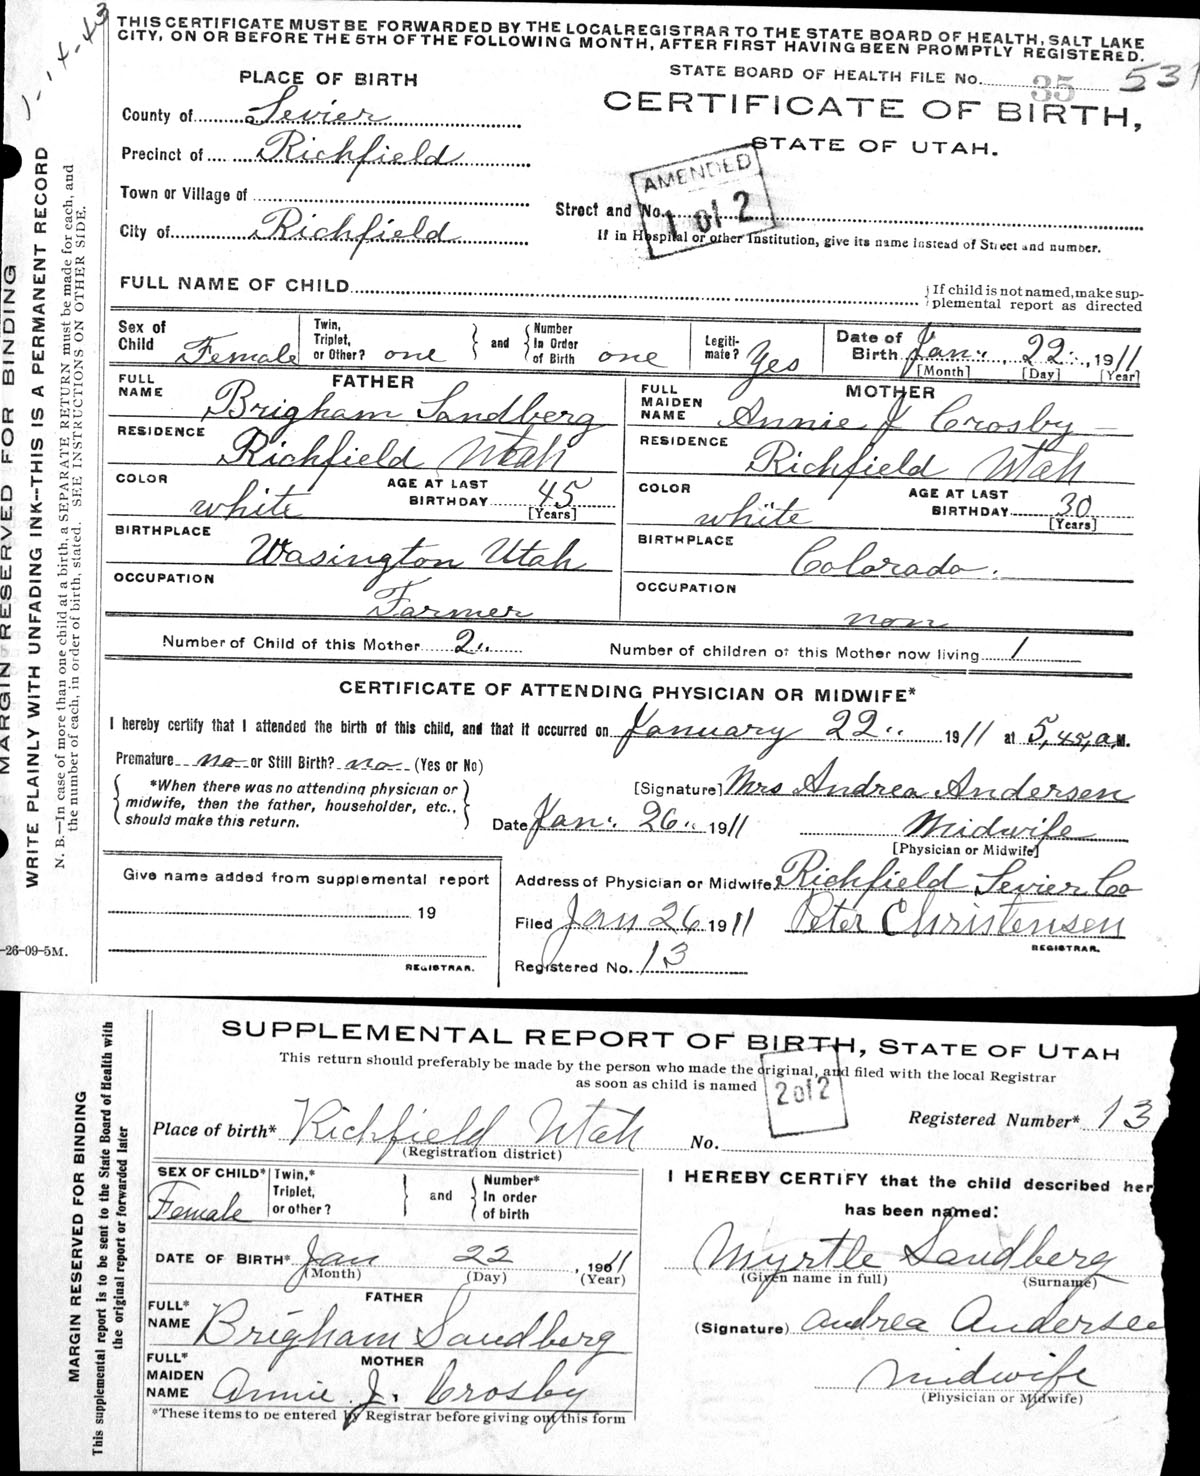 THIS CERTIFICATE MUST BE FORWARDED BY THE LOCALREGISTRAR TO THE STATE BOARD OF HEALTH, SALT LAKE
CITY, ON OR BEFORE THE 5TH OF THE FOLLOWING MONTH, AFTER FIRST HAVING BEEN PROMPTLY REGISTERED.
PLACE OF BIRTH
STATE BOARD OF HEALTH FILE No. 35 531
CERTIFICATE OF BIRTH,
STATE OF UTAH.
County of Sevier
Precinct of Richfield
Town or Village of
City of Richfield
AMENDED
1 of 2
Street and No.
If in Hospital or other Institution, give its name instead of Street and number.
FULL NAME OF CHILD
If child is not named, make sup-
plemental report as directed
Sex of Child Female
Twin, Triplet, or Other? one
and
Number In Order of Birth one
Legiti-mate? Yes
Date of Birth Jan. 22, 1911
[Month] [Day] [Year]
FATHER
FULL NAME Brigham Sandberg
RESIDENCE Richfield Utah
COLOR white
AGE AT LAST BIRTHDAY 45
[Years]
BIRTHPLACE Wasington Utah
OCCUPATION Farmer
MOTHER
FULL MAIDEN NAME Annie J Crosby
RESIDENCE Richfield Utah
COLOR white
AGE AT LAST BIRTHDAY 30
[Years]
BIRTHPLACE Colorado.
OCCUPATION non
Number of Child of this Mother 2
Number of children of this Mother now living 1
CERTIFICATE OF ATTENDING PHYSICIAN OR MIDWIFE*
I hereby certify that I attended the birth of this child, and that it occurred on January 22 1911 at 5,45, a.M.
Premature no or Still Birth? no (Yes or No)
*When there was no attending physician or
midwife, then the father, householder, etc.,
should make this return.
[Signature] Mrs Andrea Andersen
Date Jan. 26 1911
Midwife
[Physician or Midwife]
Give name added from supplemental report
19
REGISTRAR.
Address of Physician or Midwife Richfield Sevier Co
Filed Jan 26 1911 Peter Christensen
REGISTRAR.
Registered No. 13
MARGIN RESERVED FOR BINDING
WRITE PLAINLY WITH UNFADING INK--THIS IS A PERMANENT RECORD
N. B.—In case of more than one child at a birth, a SEPARATE RETURN must be made for each, and
the number of each, in order of birth, stated. SEE INSTRUCTIONS ON OTHER SIDE.
-26-09-5M.
SUPPLEMENTAL REPORT OF BIRTH, STATE OF UTAH
This return should preferably be made by the person who made the original, and filed with the local Registrar
as soon as child is named
2 of 2
Registered Number* 13
Place of birth* Richfield Utah No.
(Registration district)
SEX OF CHILD* Female
Twin,* Triplet, or other?
and
Number* In order of birth
DATE OF BIRTH* Jan 22, 1911
(Month) (Day) (Year)
FATHER
FULL* NAME Brigham Sandberg
MOTHER
FULL* MAIDEN NAME Annie J. Crosby
*These items to be entered by Registrar before giving out this form
I HEREBY CERTIFY that the child described her
has been named:
Myrtle Sandberg
(Given name in full) (Surname)
(Signature) Andrea Andersen
midwife
(Physician or Midwife)
MARGIN RESERVED FOR BINDING
This supplemental report is to be sent to the State Board of Health with
the original report or forwarded later